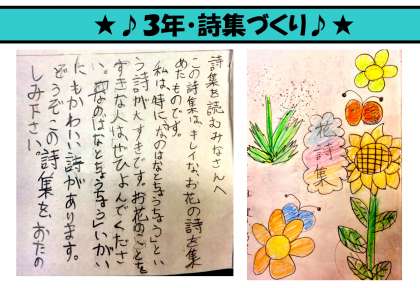 ★♪3年・詩集づくり♪★
詩集を読むみなさんへ
この詩集は、キレイな、お花の詩を集
めたものです。
私は、特に、「なのはなとちょうちょう」とい
う詩が大すきです。お花のことを
すきな人は、ぜひよんでくださ
い。「なのはなとちょうちょう」いがい
にもかわいい詩があります。
どうぞこの詩集を、おたの
しみ下さい。
花
詩
集